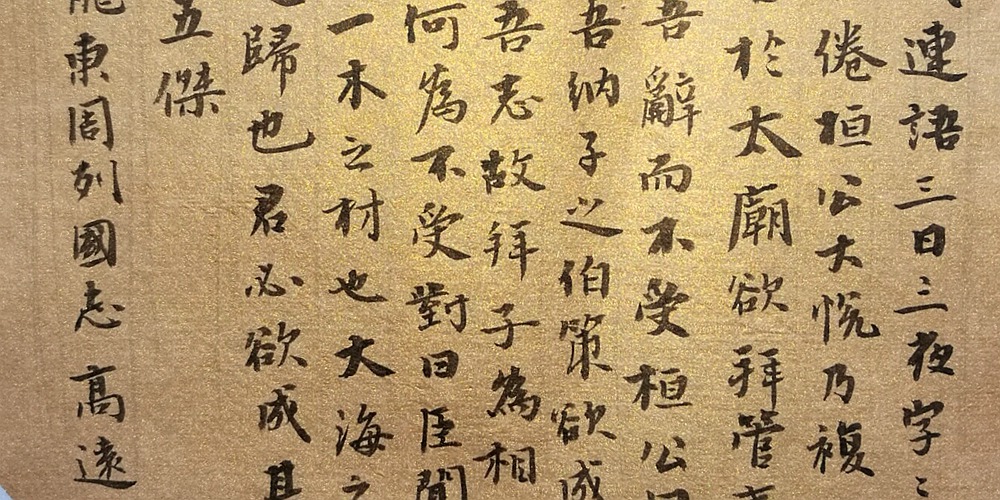 連語三日三夜字
倦桓公大悅乃複
於太廟欲拜管
吾辭而不受桓公
吾納子之伯策欲成
吾志故拜子為相
何為不受對曰臣聞
一木之材也大海之
歸也君必欲成其
五傑
東周列國志 高遠